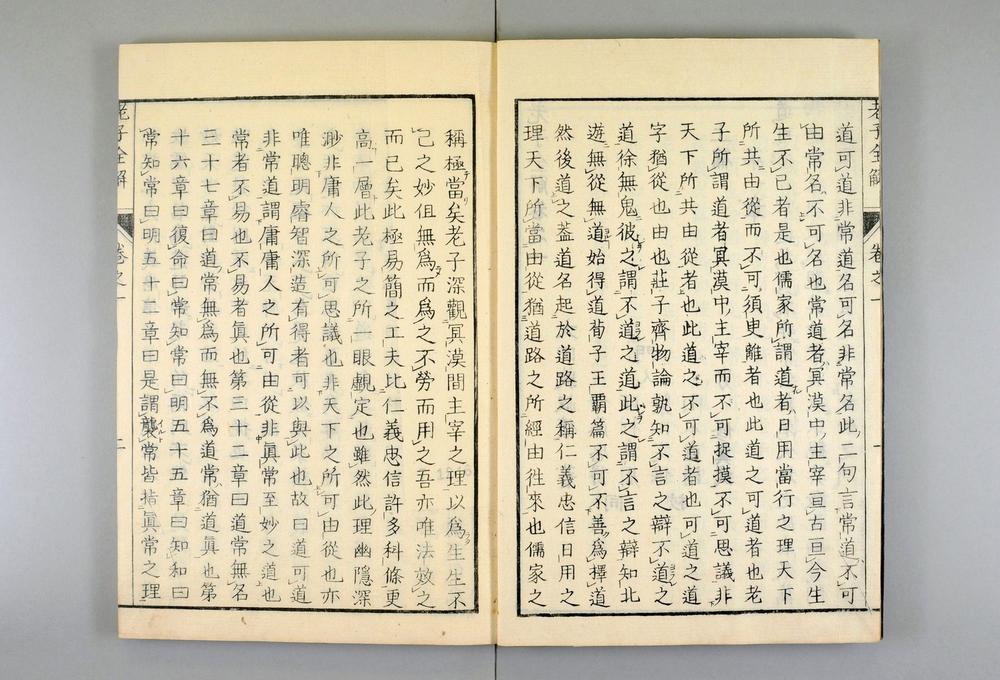 老子全解 卷之一 一
道可道非常道名可名非常名此二句言常道不可
由常名不可名也常道者冥漠中主宰亘古亘今生
生不已者是也儒家所謂道者日用當行之理天下
所共由從而不可須臾離者也此道之可道者也老
子所謂道者冥漠中主宰而不可捉摸不可思議非
天下所共由從者也此道之不可道者也可道之道
字猶從也由也莊子齊物論孰知不言之辯不道之
道徐無鬼彼之謂不道之道此之謂不言之辯知北
遊無從無道始得道荀子王霸篇不可不善爲擇道
然後道之蓋道名起於道路之稱仁義忠信日用之
理天下所當由從猶道路之所經由往來也儒家之
稱極當矣老子深觀冥漠間主宰之理以爲生生不
已之妙但無爲而爲之不勞而用之吾亦唯法效之
而已矣此極易簡之工夫比仁義忠信許多科條更
高一層此老子之所一眼覷定也雖然此理幽隱深
渺非庸人之所可思議也非天下之所可由從也亦
唯聰明睿智深造有得者可以與此也故曰道可道
非常道謂庸庸人之所可由從非眞常至妙之道也
常者不易也不易者眞也第三十二章曰道常無名
三十七章曰道常無爲而無不爲道常猶道眞也第
十六章曰復命曰常知常曰明五十五章曰知和曰
常知常曰明五十二章曰是謂襲常皆指眞常之理
老子全解 卷之一 二